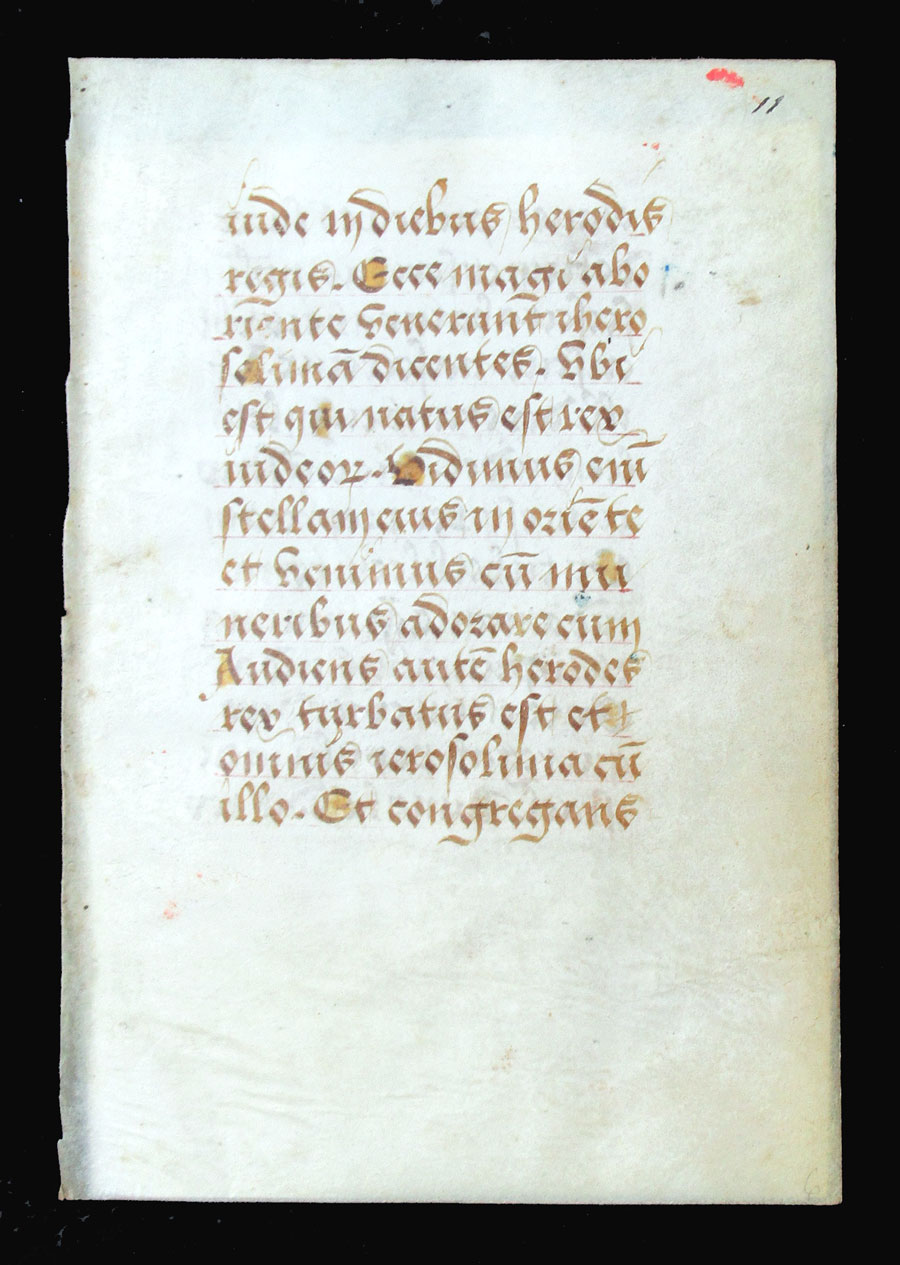 11
iude in diebus herodis
regis. Ecce magi ab o
riente venerunt ihero
solimā dicentes. Vbi
est qui natus est rex
iudeoꝝ. Vidimus eni̅
stellam eius in oriēte
et venimus cū mu
neribus adorare eum
Audiens autē herodes
rex turbatus est et
omnis ierosolima cū
illo. Et congregans